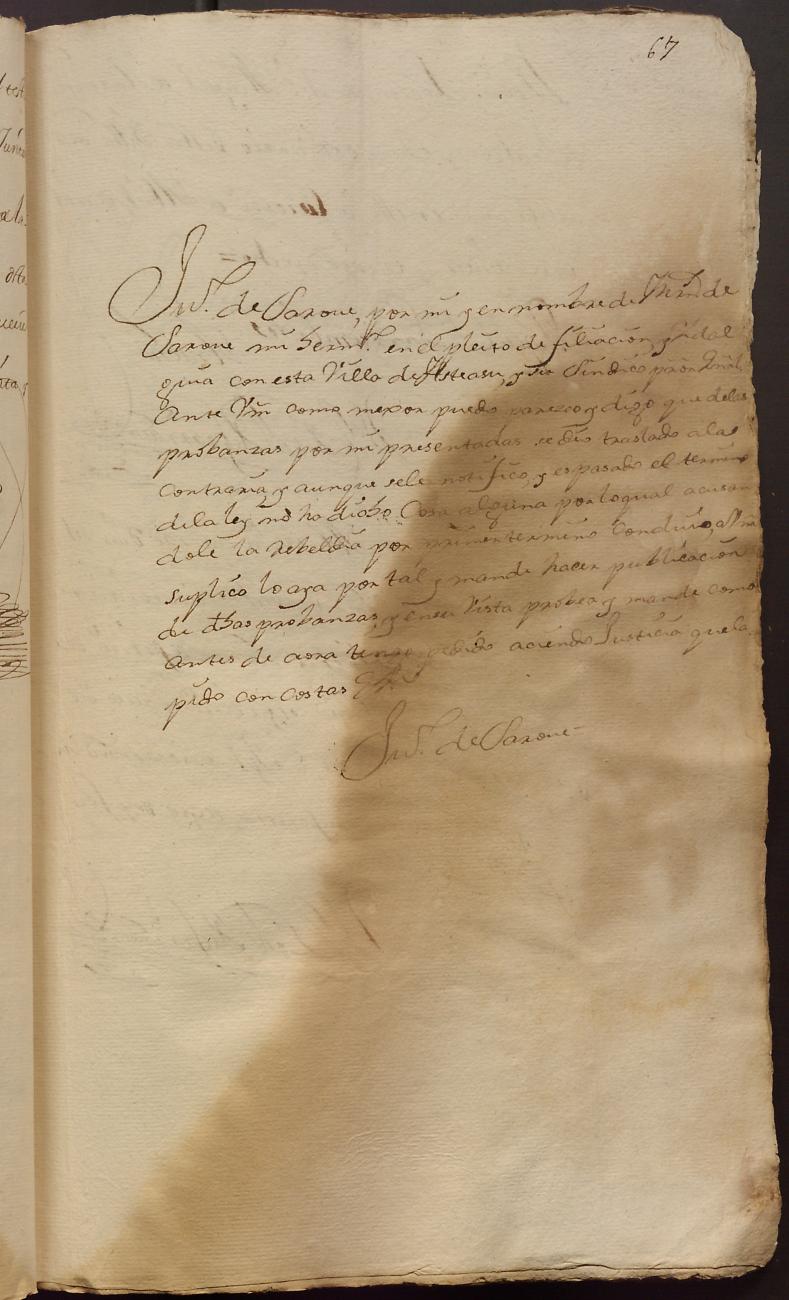 67
Ju.º de Sarove, por mi y en nombre de Mrn de
Sarove mi herm.º en el pleito de filiacion, y idal
guia con esta Villa de Asteasu, y su Sindico pror Gnàl
Ante Vm como mexor puedo parezco y digo que delas
probanzas por mi presentadas se dio traslado ala
contraria, y aunque sele notifico, y es pasado el termino
dela ley no ha dicho Cosa alguna por loqual acusan
dole la Rebeldia por primer termino Concluio, a Vm
suplico lo aya por tal y mande hacer publicacion
de dhas probanzas, y en su Vista probea y mande como
antes de aora tengo pedido aciendo Justicia que la
pido con costas
Ju.º de Sarove